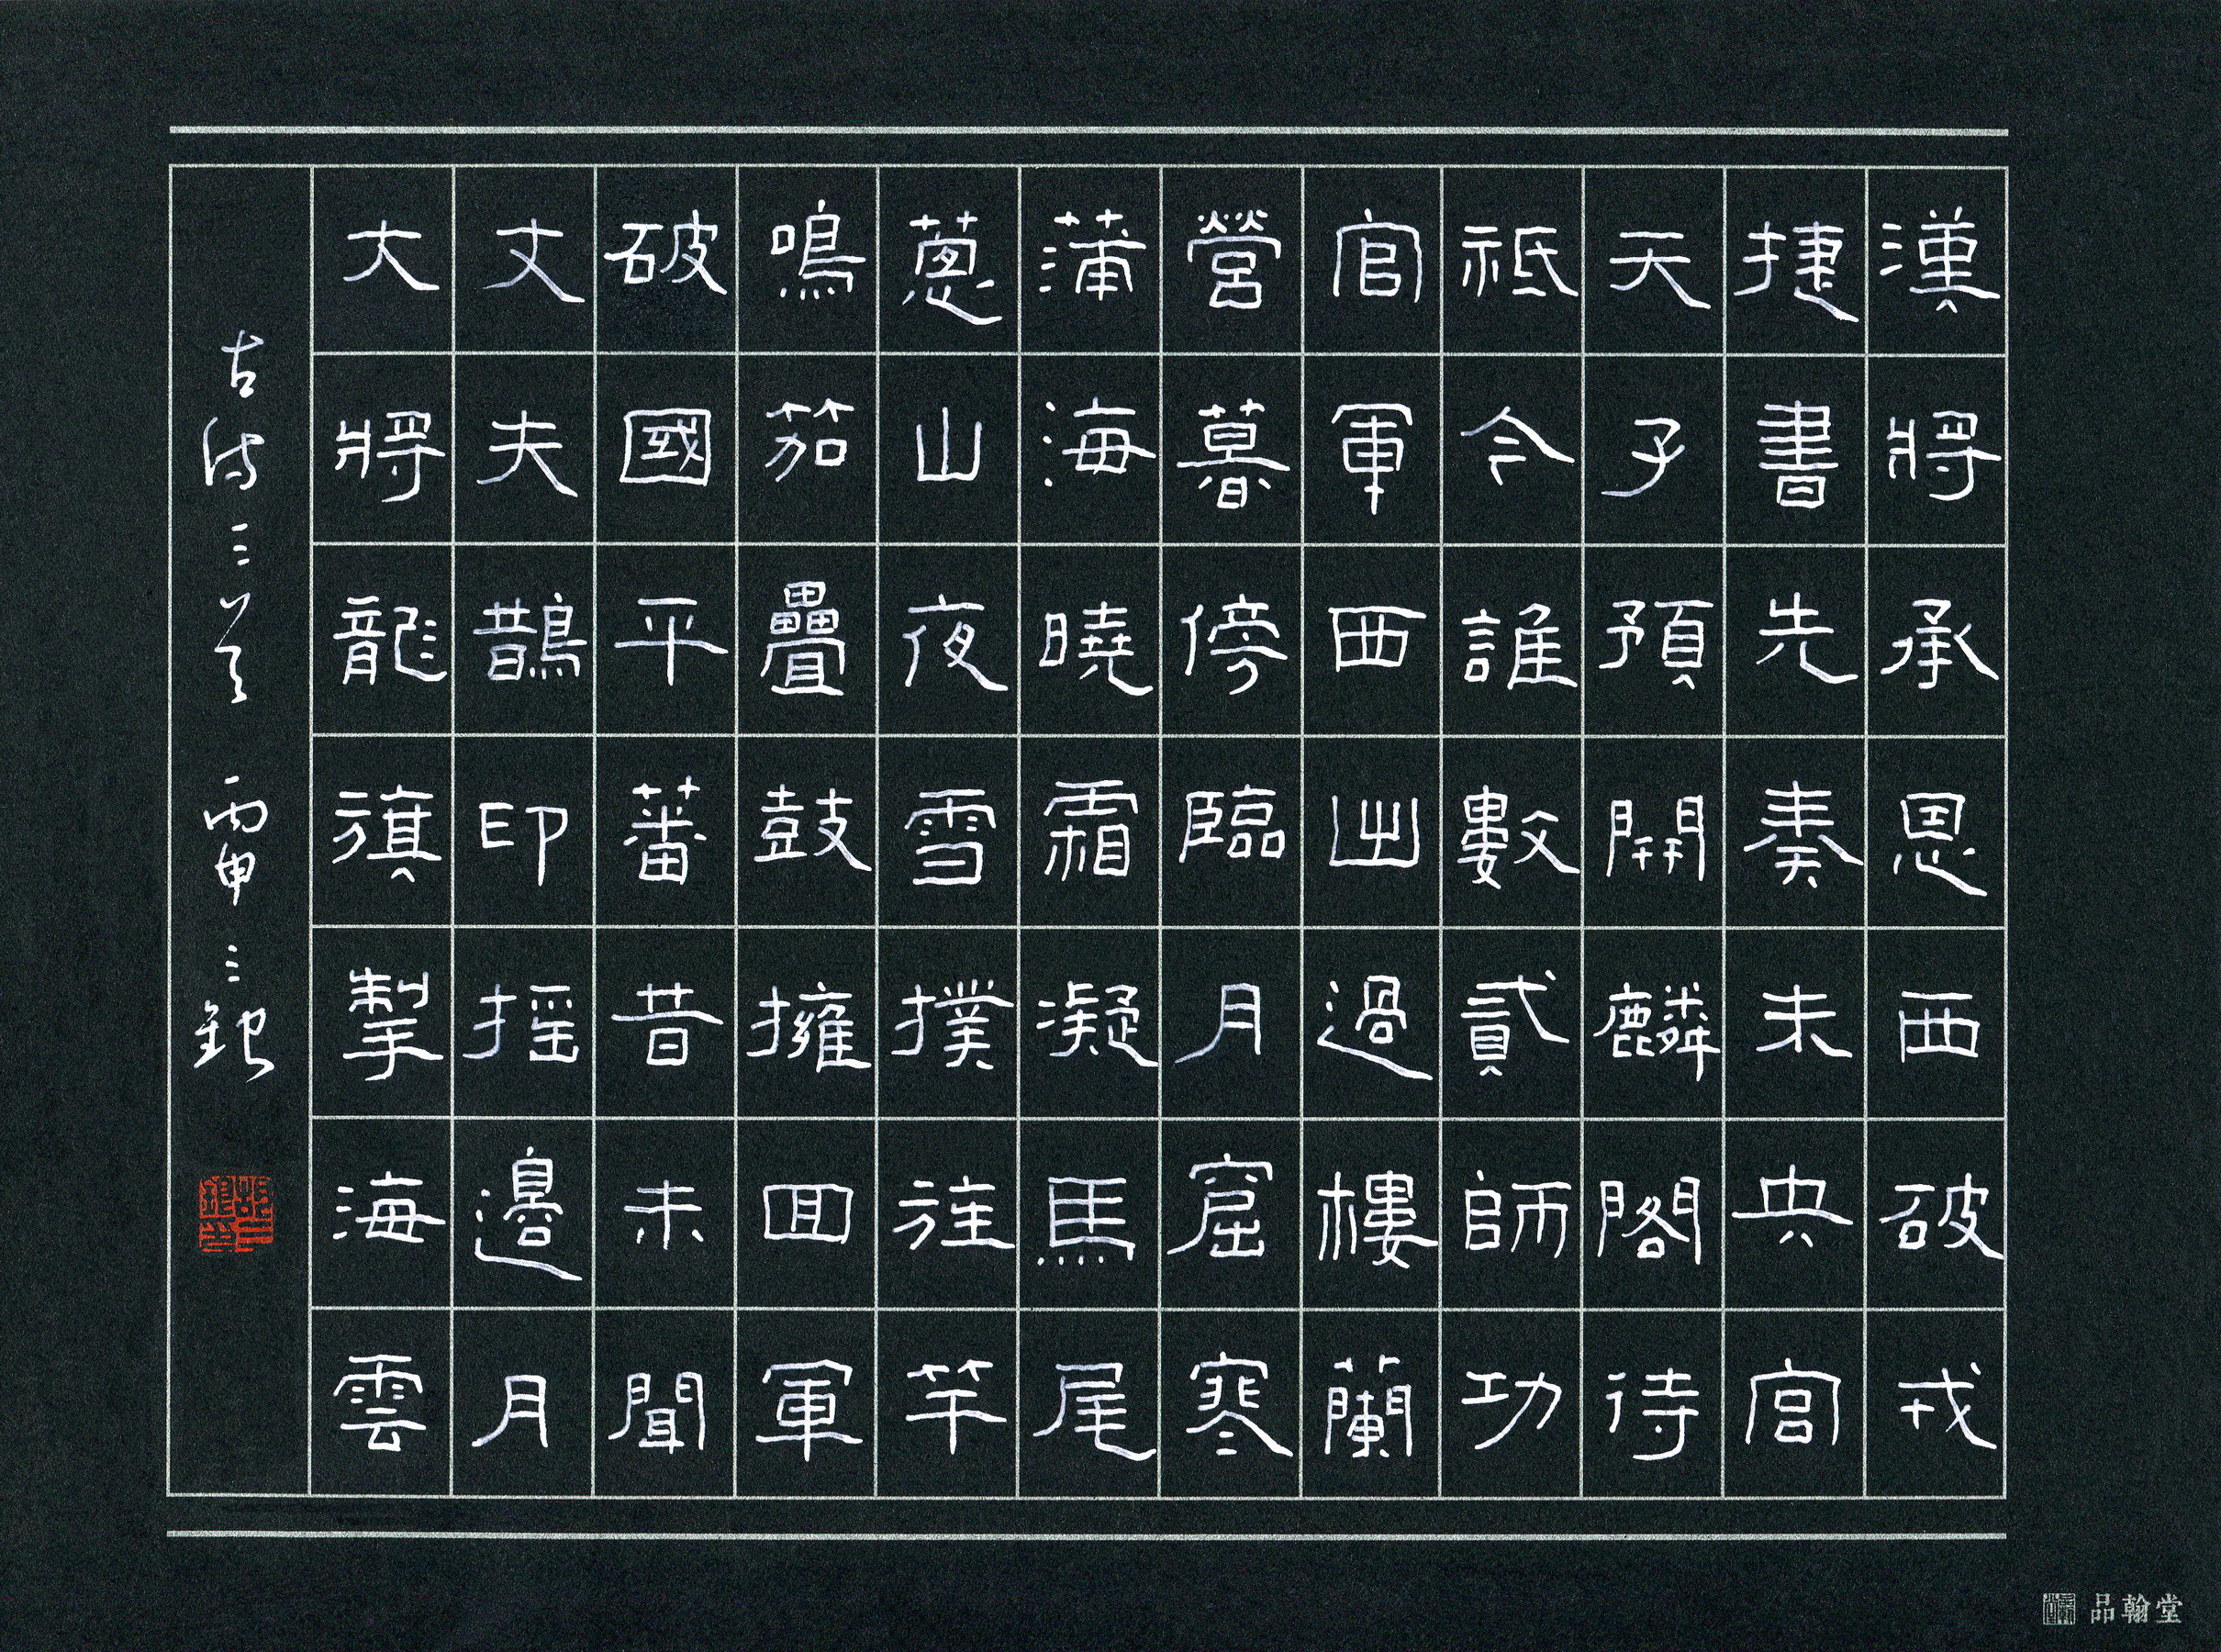 漢將承恩西破戎
捷書先奏未央宮
天子預開麟閣待
祗今誰數貳師功
官軍西出過樓蘭
營幕傍臨月窟寒
蒲海曉霜凝馬尾
蔥山夜雪撲旌竿
鳴笳疊鼓擁回軍
破國平蕃昔未聞
丈夫鵲印搖邊月
大將龍旗掣海雲
古詩三首 丙申 三銀
品翰堂